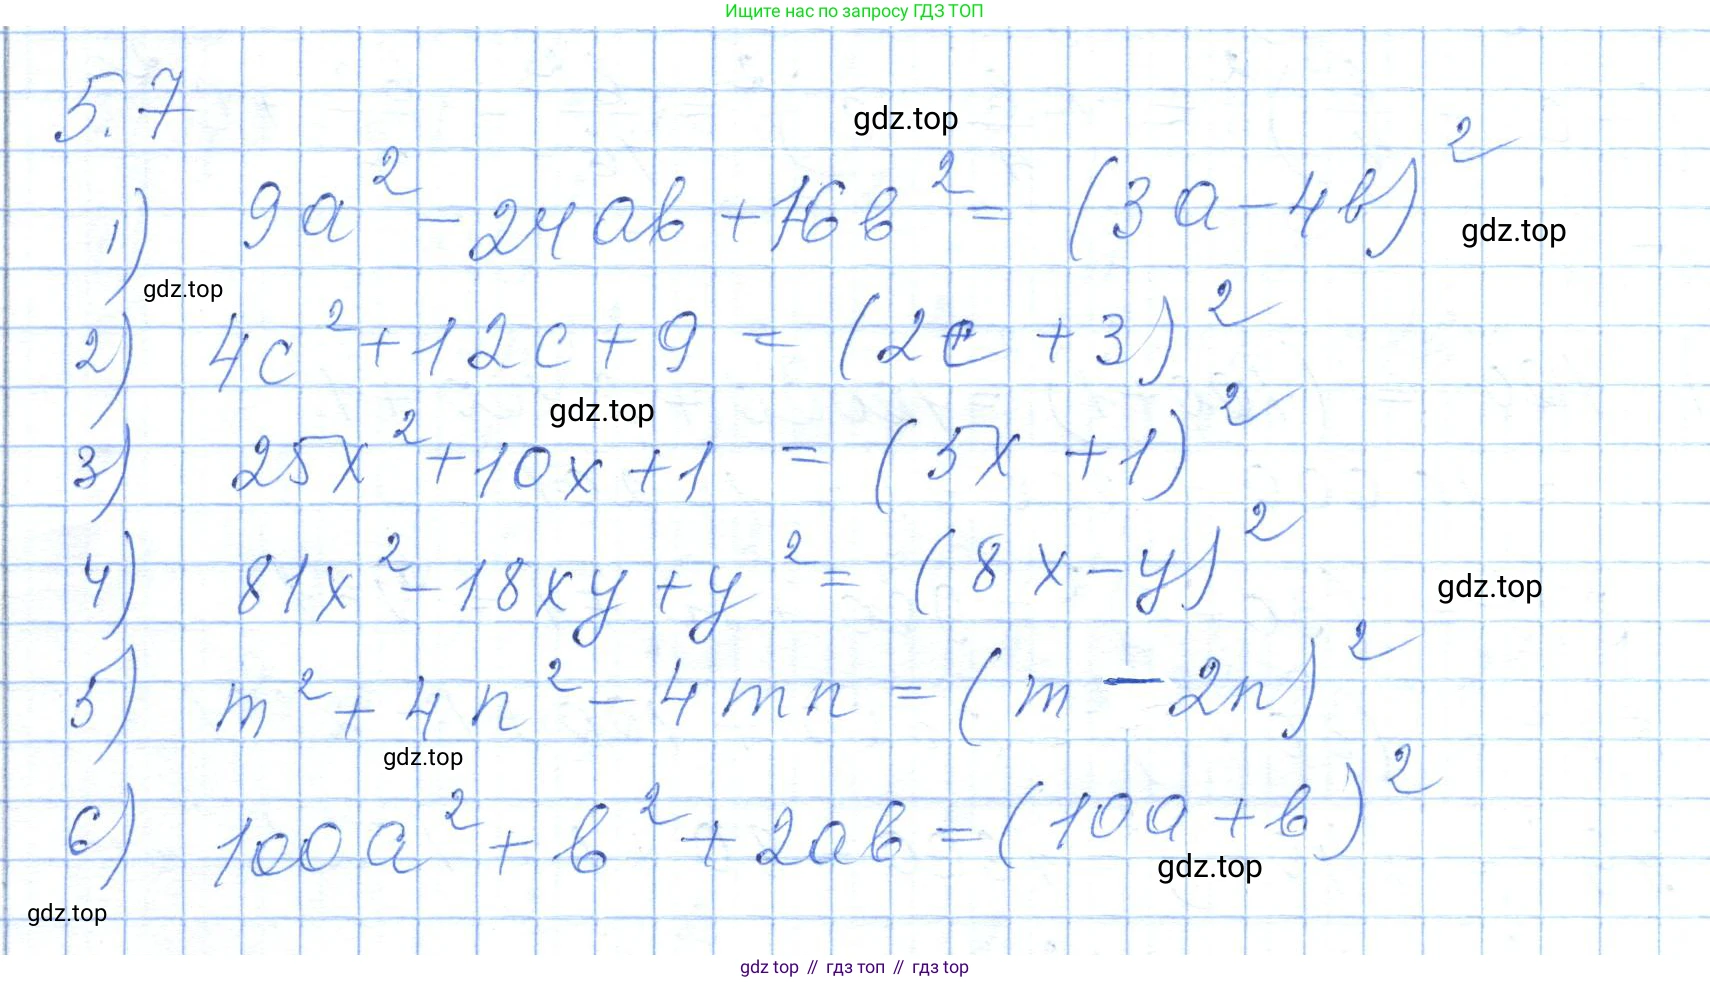 Ищите нас по запросу ГДЗ ТОП
5.7
gdz.top
1) 9a² - 24ab + 16b² = (3a - 4b)²
gdz.top
gdz.top
2) 4c² + 12c + 9 = (2c + 3)²
gdz.top
3) 25x² + 10x + 1 = (5x + 1)²
4) 81x² - 18xy + y² = (8x - y)²
gdz.top
5) m² + 4n² - 4mn = (m - 2n)²
gdz.top
6) 100a² + b² + 2ab = (10a + b)²
gdz.top
gdz.top
gdz top // гдз топ // гдз top